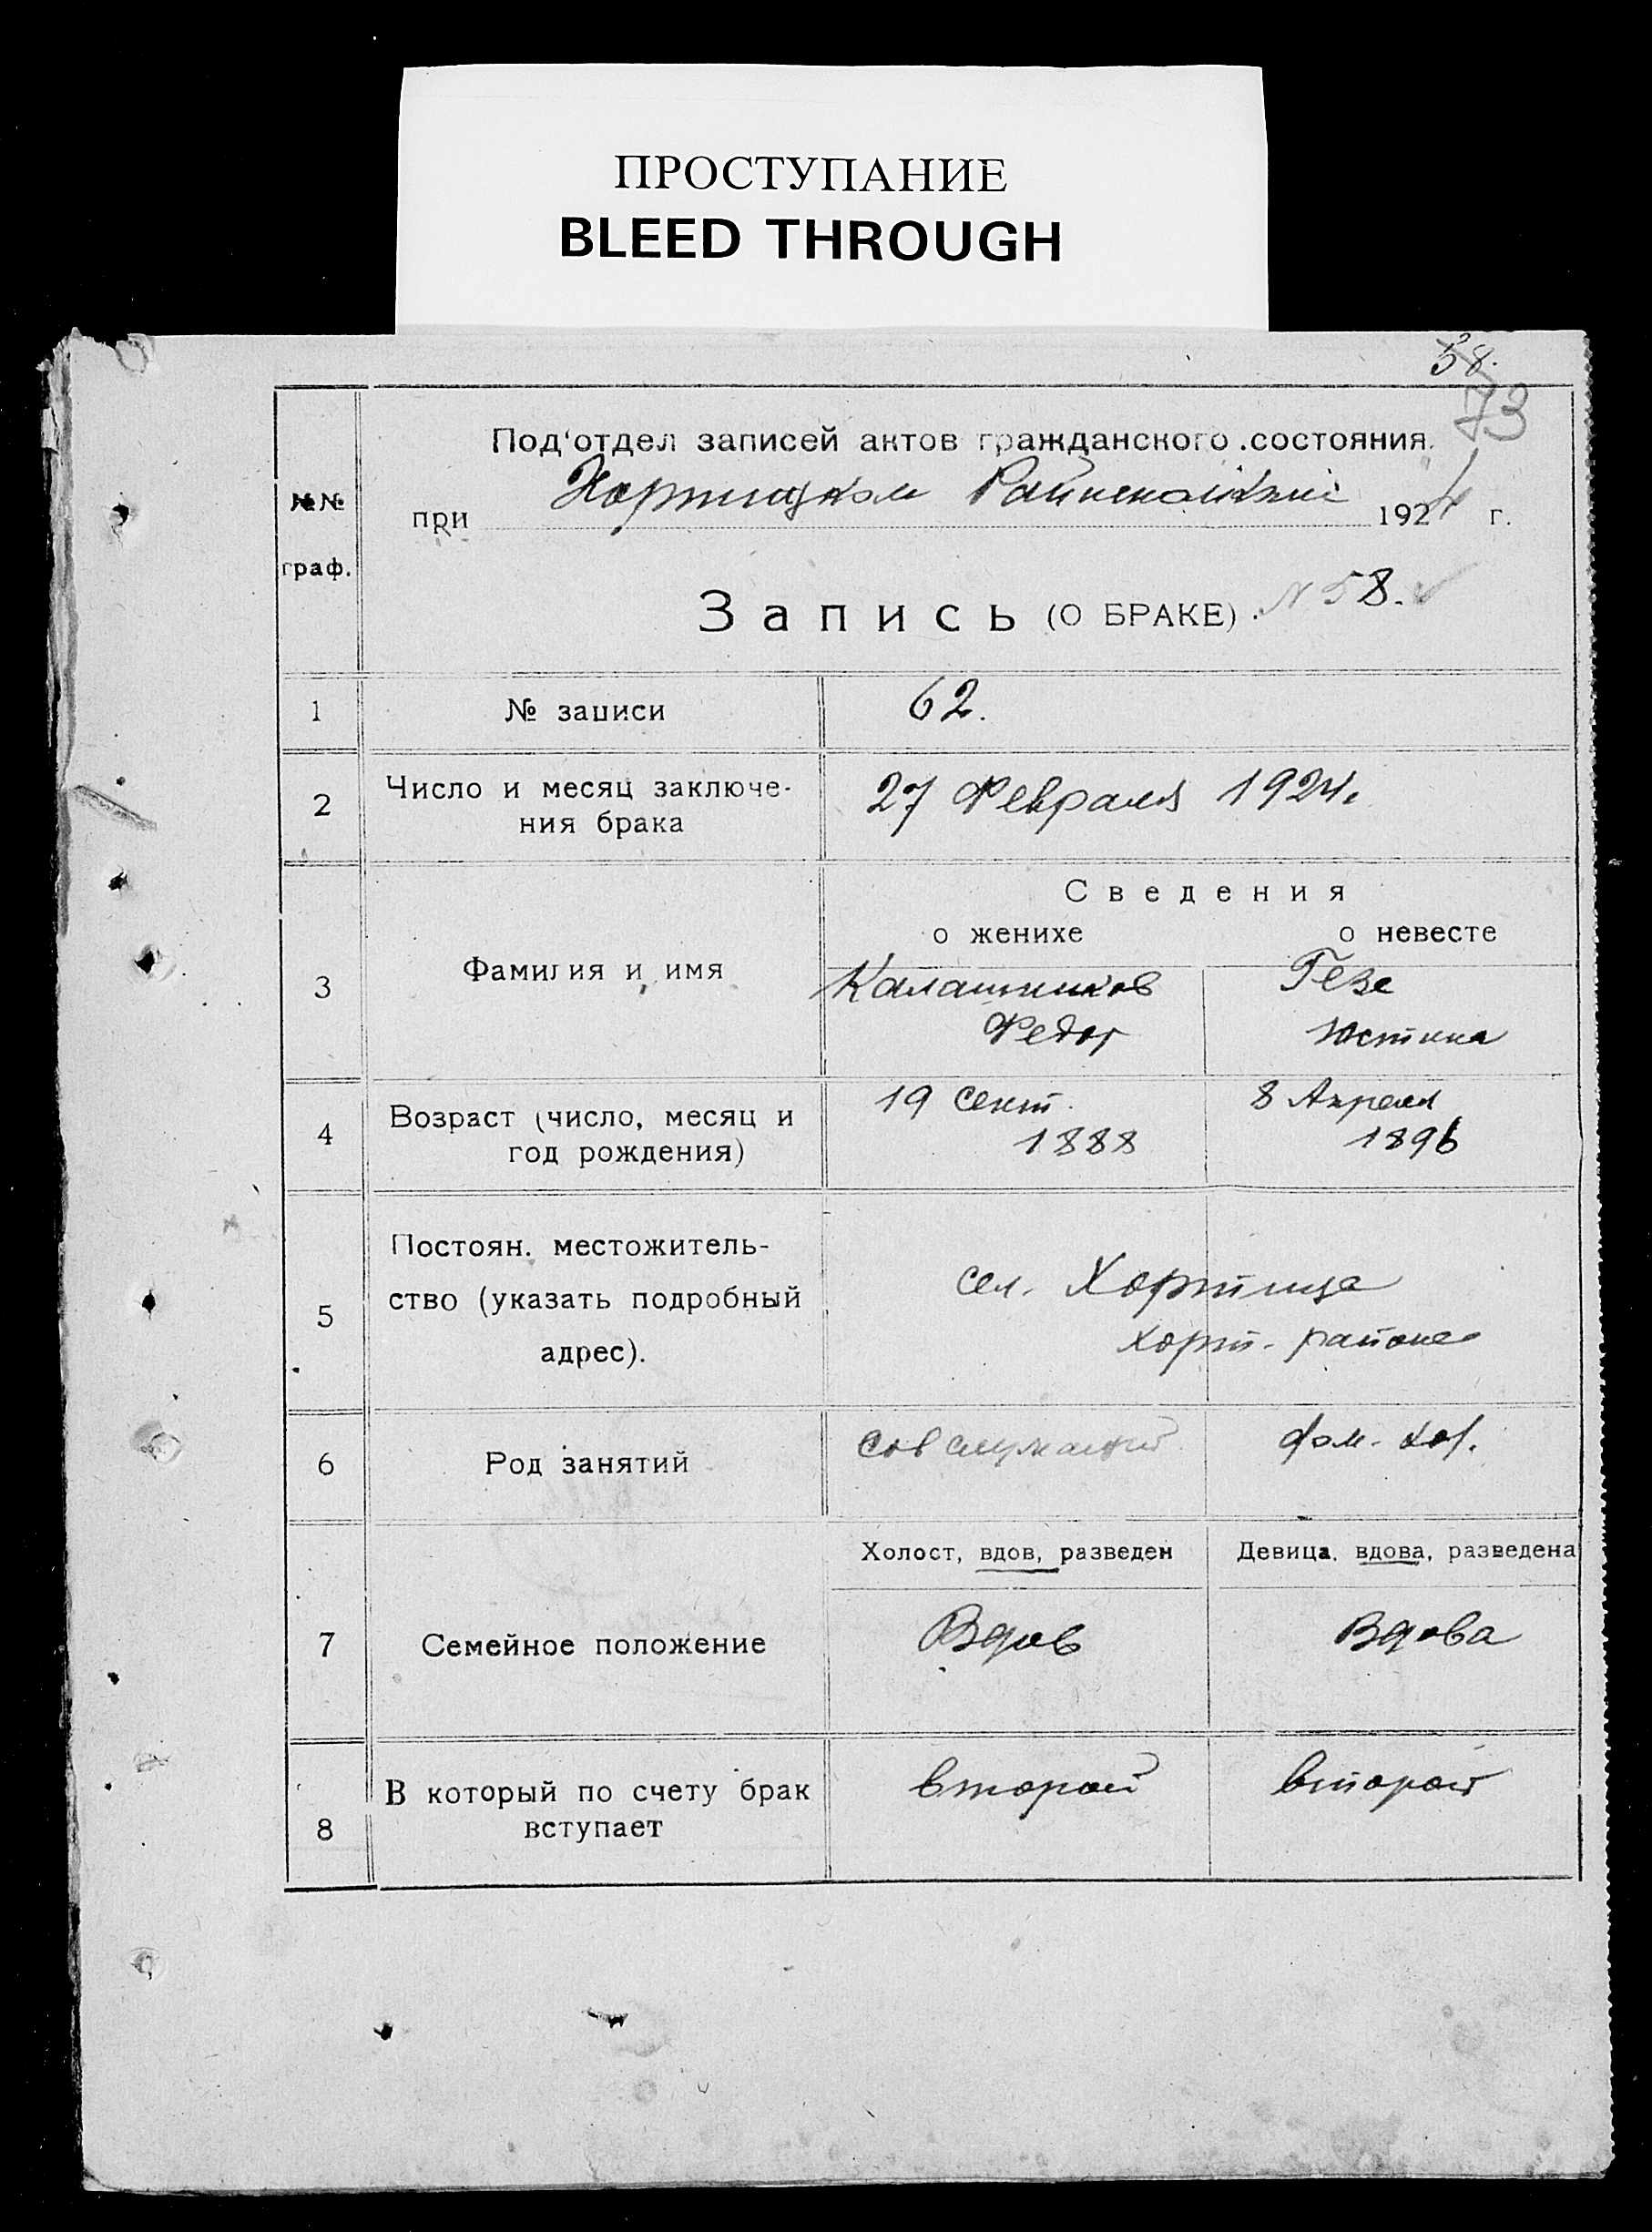 ПРОСТУПАНИЕ
BLEED THROUGH
58.
73
Под'отдел записей актов гражданского состояния.
№№ граф.
при Хортицком Райисполкоме 1924 г.
Запись (О БРАКЕ). N 58.
1 № записи 62.
2 Число и месяц заключе-
ния брака
27 Февраля 1924.
Сведения
о женихе о невесте
3 Фамилия и имя
Калашников Гезе
Федор Юстина
4 Возраст (число, месяц и
год рождения)
19 Сент. 8 Апреля
1888 1896
5 Постоян. местожитель-
ство (указать подробный
адрес).
сел. Хортица
Хорт. района
6 Род занятий
Сов служащий дом. хоз.
Холост, вдов, разведен Девица, вдова, разведена
7 Семейное положение
Вдов Вдова
8 В который по счету брак
вступает
второй второй